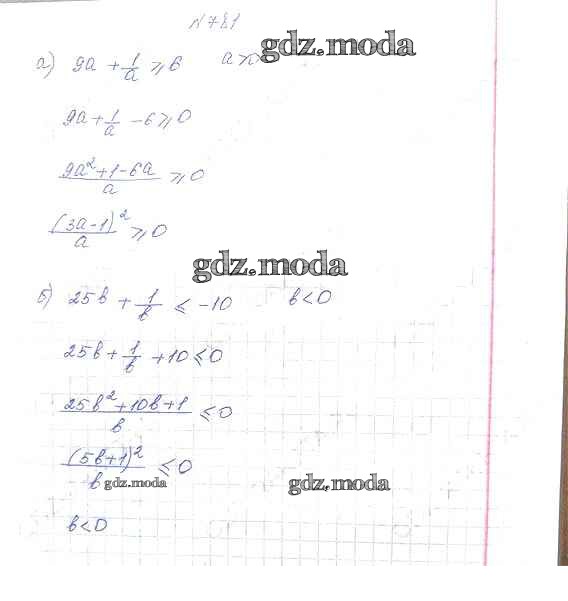 №781
gdz.moda
а) 9a + 1/a ⩾ 6 a >
9a + 1/a - 6 ⩾ 0
9a² + 1 - 6a / a ⩾ 0
(3a - 1)² / a ⩾ 0
gdz.moda
б) 25b + 1/b ⩽ -10 b < 0
25b + 1/b + 10 ⩽ 0
25b² + 10b + 1 / b ⩽ 0
(5b + 1)² / b ⩽ 0
gdz.moda
gdz.moda
b < 0